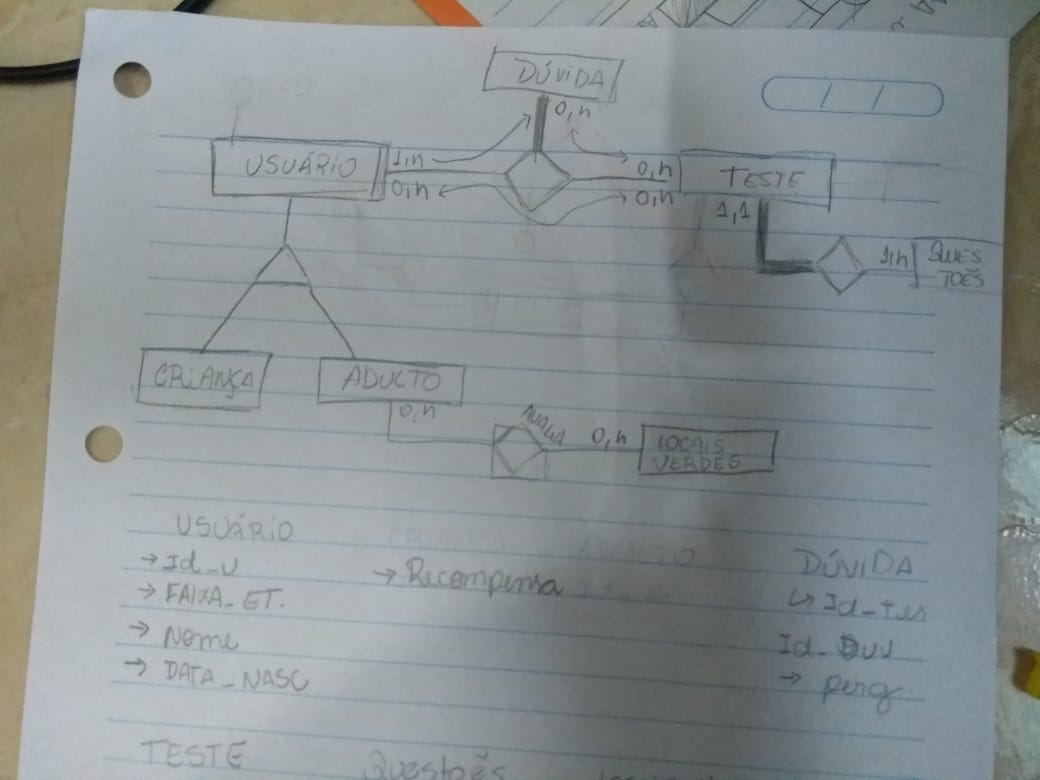 DÚVIDA
0,n
USUÁRIO
1,n
0,n
0,n
0,n
TESTE
1,1
1,n
QUES
TOẼS
CRIANÇA
ADULTO
0,n
AVALIA
0,n
LOCAIS
VERDES
USUÁRIO
→ Id_U
→ FAIXA_ET.
→ Nome
→ DATA_NASC
→ Recompensa
ADULTO
DÚVIDA
↳ Id_tes
Id_Duv
→ perg
TESTE
Questoẽs